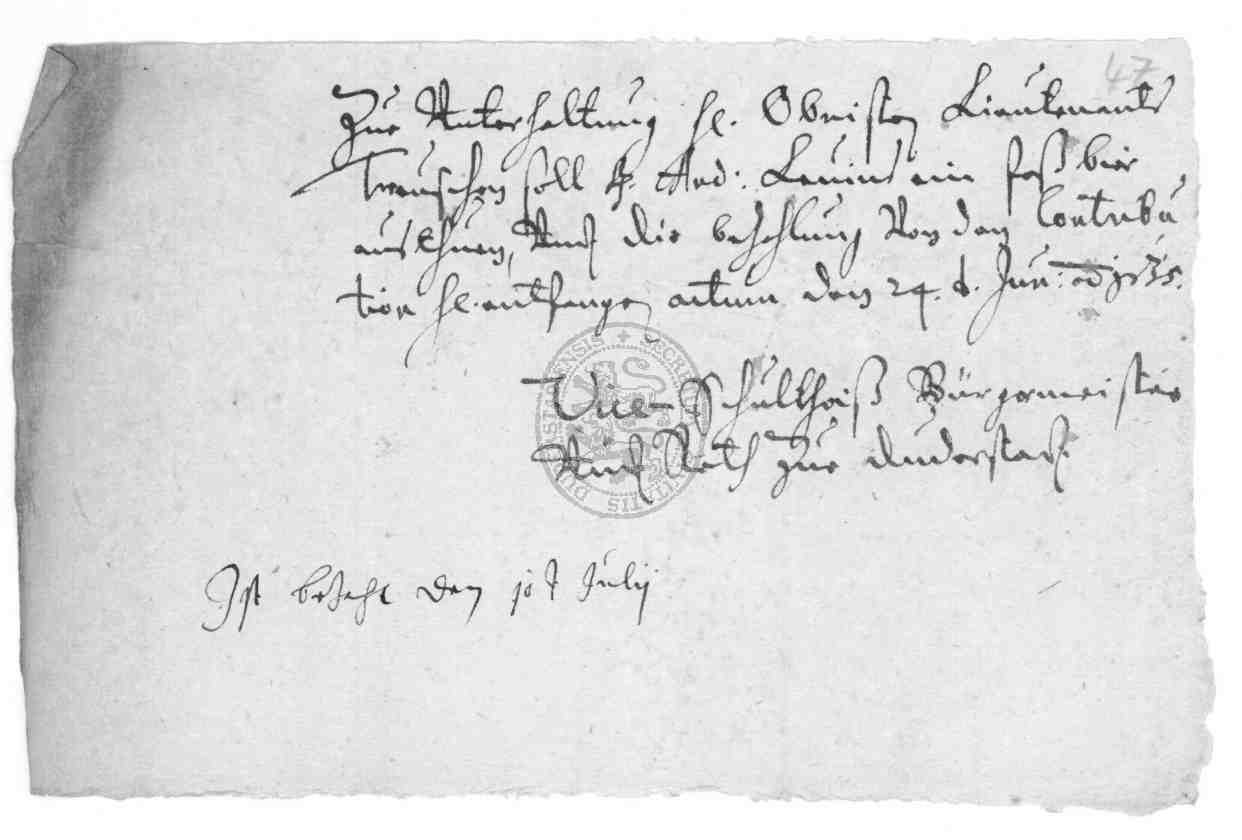 47
Zue Unterhaltung H. Obristen Lieutenants
Treuschen soll H. And: Levin ein faß bier
austhuen, Und die bezahlung Von den Contribu
tion H. entfangen actum den 24. t. Jun: Ao 1635.
Vice Schultheiß Bürgermeister
Und Rath Zue Duderstadt
Ist bezahlt den 10 t Julij